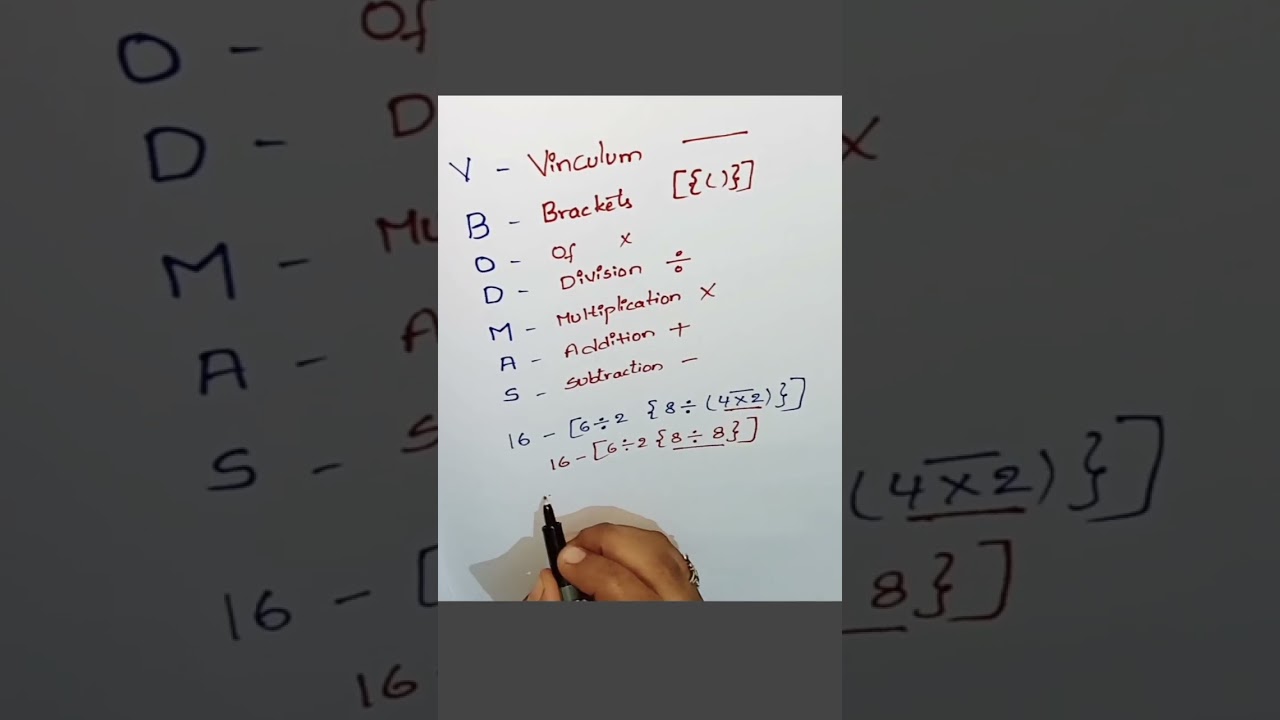 V - Vinculum ‾‾‾
B - Brackets [{()}]
O - Of ×
D - Division ÷
M - Multiplication ×
A - Addition +
S - Subtraction -
16 - [6÷2 {8÷(4×2)}]
16-[6÷2{8÷8}]